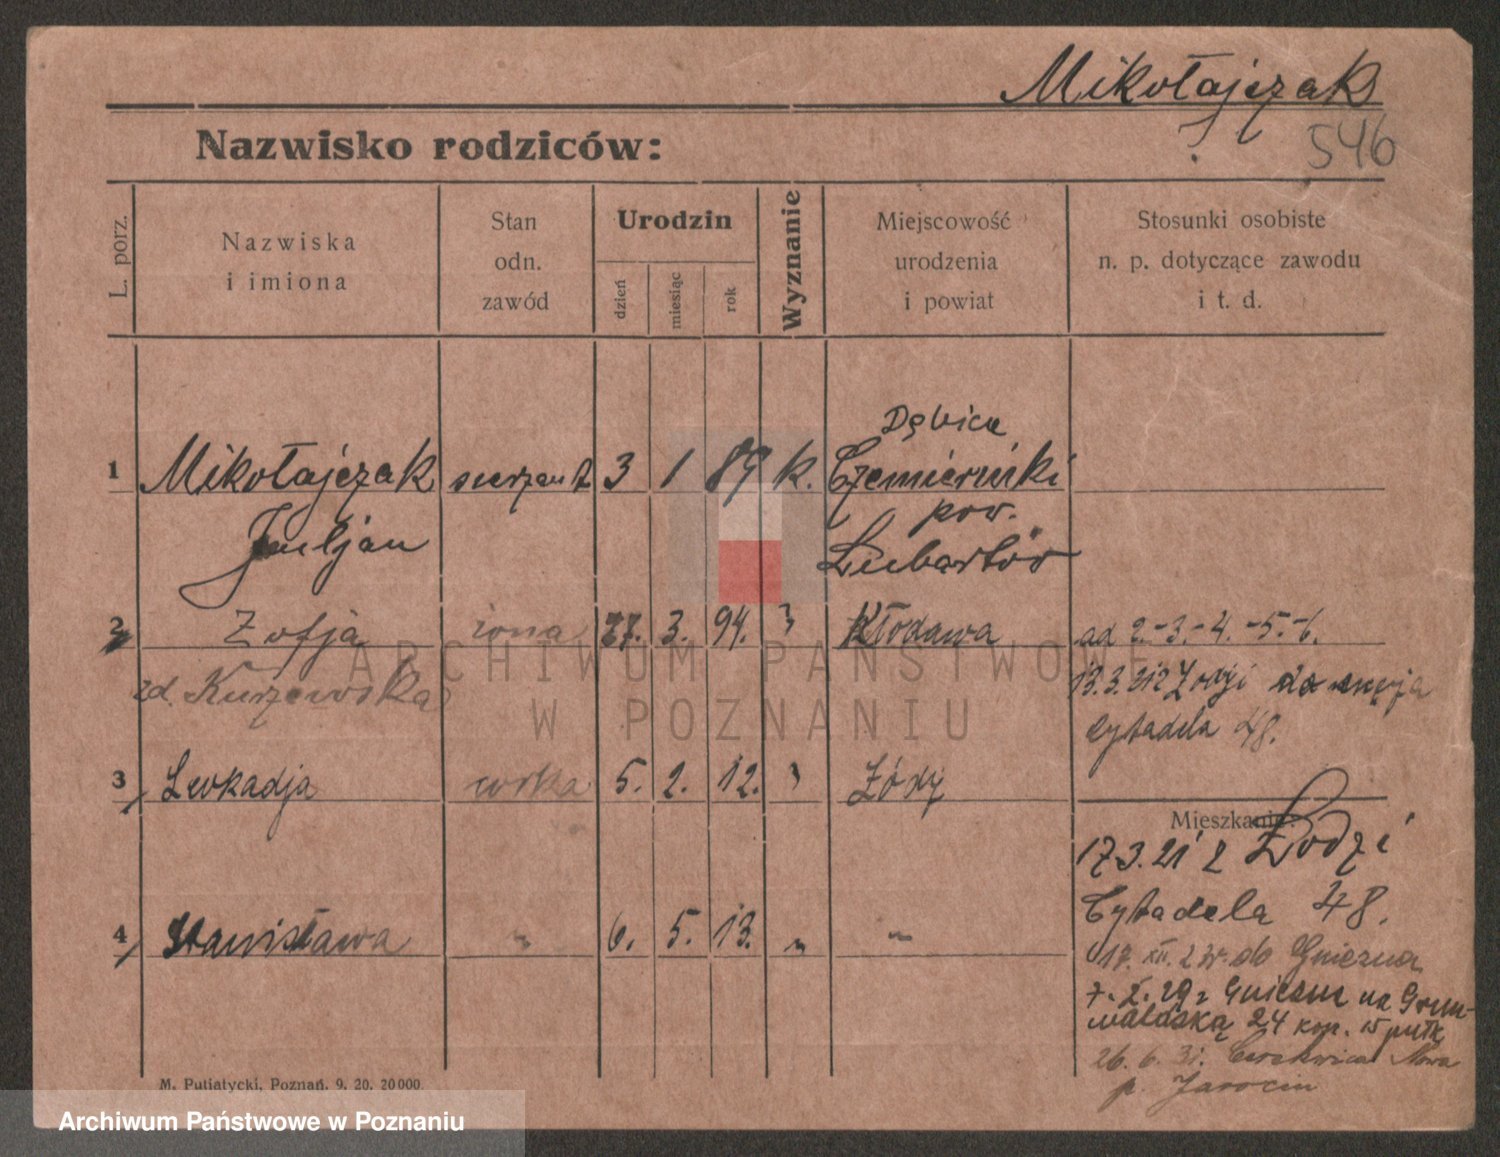 Mikołajczak
J.
546
Nazwisko rodziców:
L. porz.
Nazwiska
i imiona
Stan
odn.
zawód
Urodzin
dzień
miesiąc
rok
Wyznanie
Miejscowość
urodzenia
i powiat
Stosunki osobiste
n. p. dotyczące zawodu
i t. d.
Dębica
1 Mikołajczak sierżant 3 1 89 k. Czemierniki
pow.
Juljan Lubartów
2 Zofja żona 27. 3. 94. " Kłodawa ad 2.-3.-4.-5.-6.
zd. Kurzewska 13.3.21 z Łodzi do męża
Cytadela 48.
3 Leokadja córka 5. 2. 12. " Łódź
Mieszkanie:
17.3.21 z Łodzi
Cytadela 48.
4 Stanisława " 6. 5. 13. " "
17. XII. 23 r. do Gniezna
7. 2. 29 z Gniezna na Grun-
waldzką 24 kop. 15 pułk
26. 6. 31. Cerekwica Nowa
p. Jarocin
M. Putiatycki, Poznań. 9. 20. 20000
ARCHIWUM PAŃSTWOWE
W POZNANIU
Archiwum Państwowe w Poznaniu